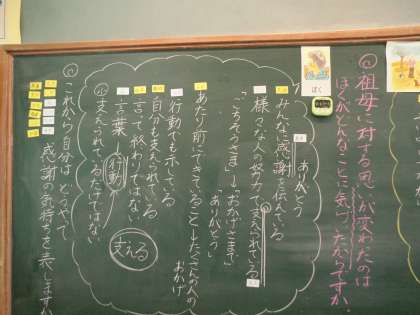 ◎祖母に対する思いが変わったのは
ぼくがどんなことに気づいたからですか。
ぼく
ありがとう
みんなに感謝を伝えている
様々な人の努力で支えられている
「ごちそうさま」→「おかげさまで」
「ありがとう」
あたり前にできていることも、たくさんの人の
おかげ
行動でも示している
自分も支えられている
言って終わりではない
言葉→行動
支えられているだけではない
支える
これから自分はどうやって
感謝の気持ちを表しますか